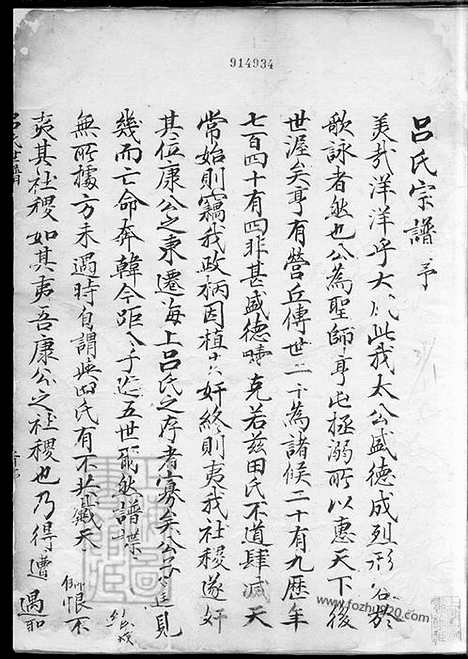 914934
呂氏宗譜予
美哉洋洋乎大哉此我太公盛德成列形名於
歌詠者然也公為聖師享此極溺所以惠天下後
世渥矣享有營丘傳世二十為諸侯二十有九歷年
七百四十有四非甚盛德疇克若茲田氏不道肆滅天
常始則竊我政柄因植其奸終則夷我社稷遂奸
其位康公之東遷海上呂氏之存者寡矣公
幾而亡命奔韓今距今乎近五世爾然譜牒
無所據方未遇時自謂與田氏有不共戴天
夷其社稷如其夷吾康公之社稷也乃得遭遇
呂氏世譜
www.fozhu920.com